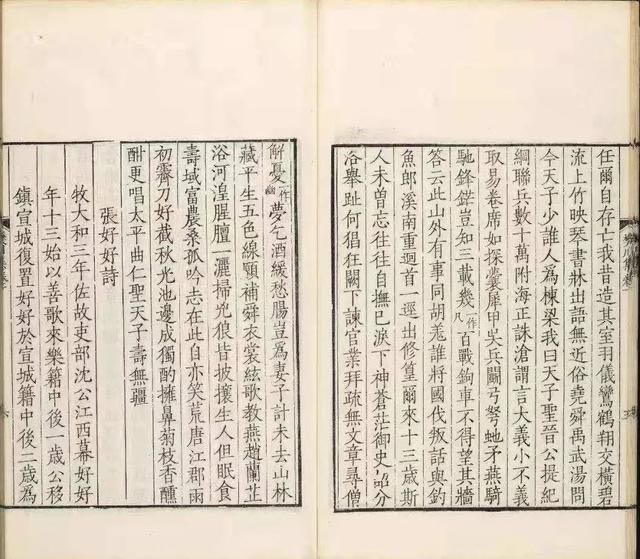 任爾自存亡我昔造其室羽儀鸞鶴翔交橫碧
流上竹映琴書牀出語無近俗堯舜禹武湯問
今天子少誰人爲棟梁我曰天子聖晉公提紀
綱聯兵數十萬附海正誅滄謂言大義小不義
取易卷席如探囊犀甲吳兵鬭弓弩蛇矛燕騎
馳鋒鋩豈知三載幾一作凡百戰鉤車不得望其牆
答云此山外有事同胡羌誰將國伐叛話與釣
魚郎溪南重迴首一逕出修篁爾來十三歲斯
人未曾忘往往自撫己淚下神蒼茫御史詔分
洛舉趾何猖狂闕下諫官業拜疏無文章尋僧
解憂一作幽夢乞酒緩愁腸豈爲妻子計未去山林
藏平生五色線願補舜衣裳絃歌教燕趙蘭芷
浴河湟腥膻一灑掃光狼皆披攘生人但眠食
壽域富農桑孤吟志在此自亦笑荒唐江郡雨
初霽刀好截秋光池邊成獨酌擁鼻菊枝香醺
酣更唱太平曲仁聖天子壽無疆
張好好詩
牧大和三年佐故吏部沈公江西幕好好
年十三始以善歌來樂籍中後一歲公移
鎮宣城復置好好於宣城籍中後二歲爲